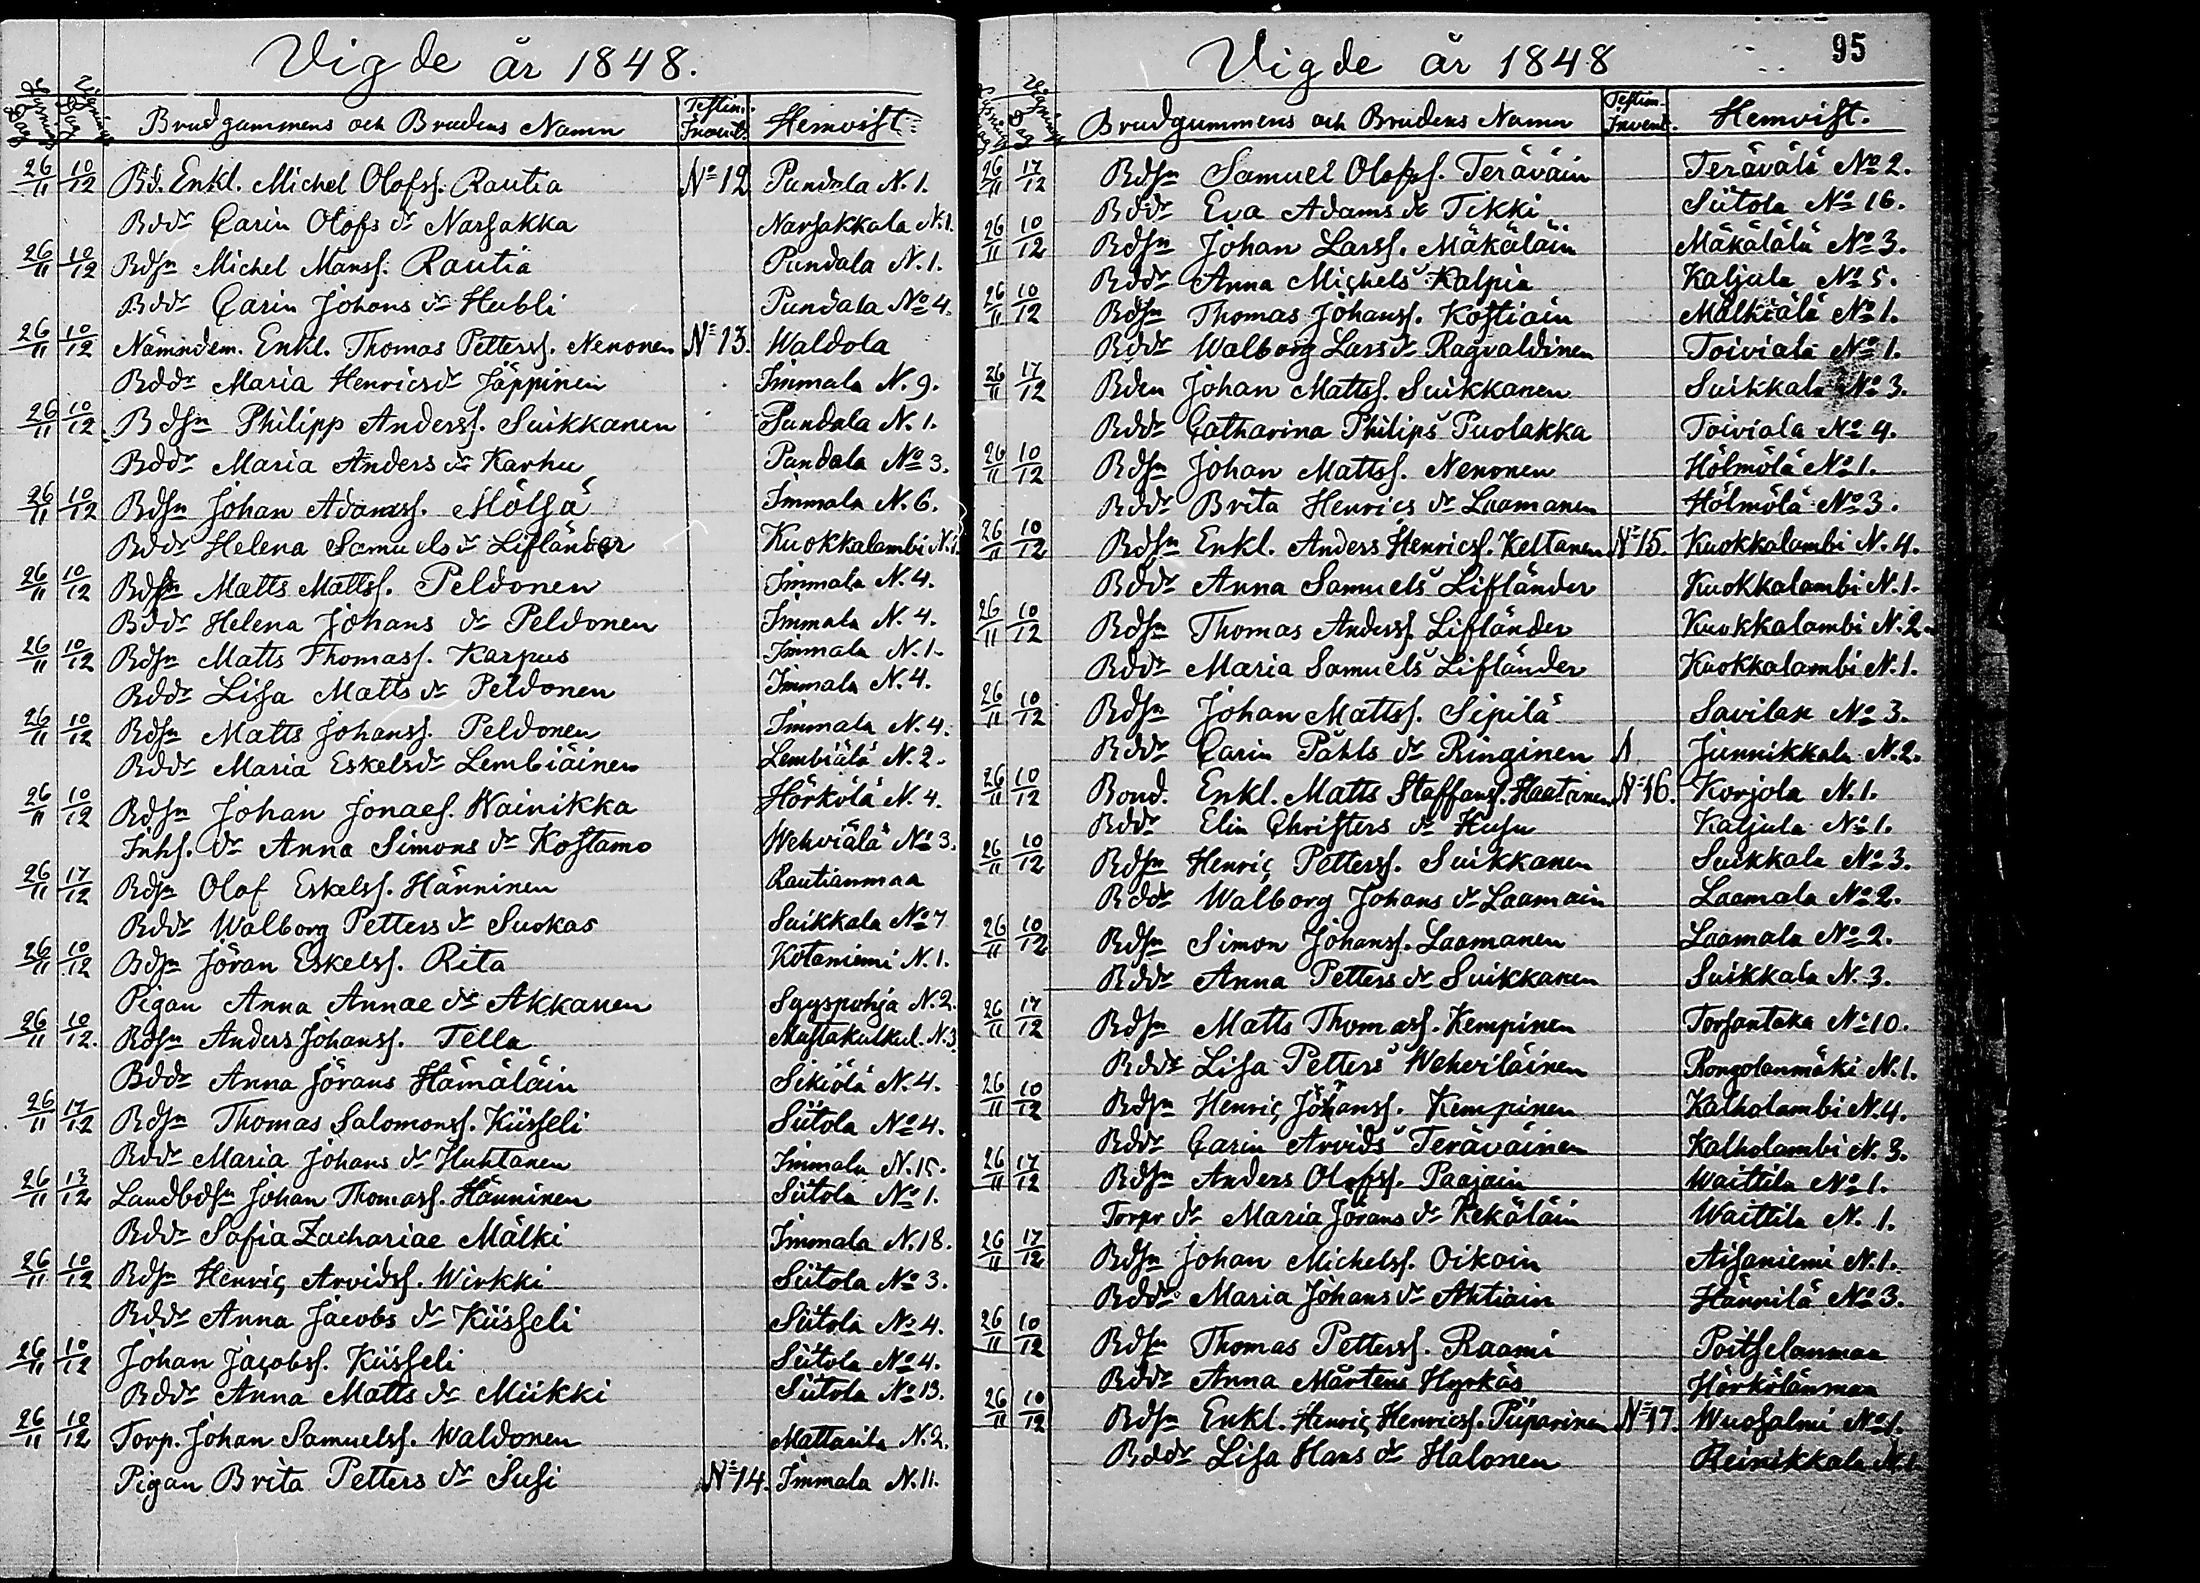 Vigde år 1848.
Lysnings Dag Vignings Dag Brudgummens och Brudens Namn Testim. Invent. Hemvist.
26/11 10/12 Bd. Enkl. Michel Olofss. Rautia No 12 Pundala N. 1.
Bddr Carin Olofs dr Narsakka Narsakkala N. 1.
26/11 10/12 Bdsn Michel Mansf. Rautia Pundala N. 1.
Bddr Carin Johans dr Hubli Pundala No 4.
26/11 10/12 Nämndem. Enkl. Thomas Petterss. Nenonen No 13. Waldola
Bddr Maria Henrics dr Jäppinen Immala N. 9.
26/11 10/12 Bdsn Philipp Anderss. Suikkanen Pundala N. 1.
Bddr Maria Anders dr Karhu Pundala No 3.
26/11 10/12 Bdsn Johan Adamss. Mölsä Immala N. 6.
Bddr Helena Samuels dr Lifländer Kuokkalambi N. 1.
26/11 10/12 Bdsn Matts Mattss. Peldonen Immala N. 4.
Bddr Helena Johans dr Peldonen Immala N. 4.
26/11 10/12 Bdsn Matts Thomass. Karpus Immala N. 1.
Bddr Lisa Matts dr Peldonen Immala N. 4.
26/11 10/12 Bdsn Matts Johanss. Peldonen Immala N. 4.
Bddr Maria Eskels dr Lembiäinen Lembiälä N. 2.
26/11 10/12 Bdsn Johan Jonaes. Wainikka Hörkölä N. 4.
Inhs. dr Anna Simons dr Kostamo Wehviälä No 3.
26/11 17/12 Bdsn Olof Eskelss. Hänninen Rautianmaa
Bddr Walborg Petters dr Suokas Suikkala No 7
26/11 10/12 Bdsn Jöran Eskelss. Rita Kotaniemi N. 1.
Pigan Anna Annae dr Akkanen Syyspohja N. 2.
26/11 10/12. Bdsn Anders Johanss. Tella Mustakulkul. N. 3.
Bddr Anna Jörans Hämäläin Sikiölä N. 4.
26/11 17/12 Bdsn Thomas Salomonss. Kiisseli Siitola No 4.
Bddr Maria Johans dr Huhtanen Immala N. 15.
26/11 13/12 Landbdsn Johan Thomass. Hänninen Siitola No 1.
Bddr Sofia Zachariae Mälki Immala N. 18.
26/11 10/12 Bdsn Henric Arvidss. Wirkki Siitola No 3.
Bddr Anna Jacobs dr Kiisseli Siitola No 4.
26/11 10/12 Johan Jacobss. Kiisseli Siitola No 4.
Bddr Anna Matts dr Miikki Siitola No 13.
26/11 10/12 Torp. Johan Samuelss. Waldonen Mattarila N. 2.
Pigan Brita Petters dr Susi No 14. Immala N. 11.
Vigde år 1848 95
Lysnings Dag Vignings Dag Brudgummens och Brudens Namn Testim. Invent. Hemvist.
26/11 17/12 Bdsn Samuel Olofss. Teräväin Terävälä No 2.
Bddr Eva Adams dr Tikki Siitola No 16.
26/11 10/12 Bdsn Johan Larss. Mäkäläin Mäkälälä No 3.
Bddr Anna Michels Kalpia Kaljula No 5.
26/11 10/12 Bdsn Thomas Johanss. Kostiain Mälkiälä No 1.
Bddr Walborg Lars dr Ragvaldinen Toiviala No 1.
26/11 17/12 Bden Johan Mattss. Suikkanen Suikkala No 3.
Bddr Catharina Philips Puolakka Toiviala No 4.
26/11 10/12 Bdsn Johan Mattss. Nenonen Hölmölä No 1.
Bddr Brita Henrics dr Laamanen Hölmölä No 3.
26/11 10/12 Bdsn Enkl. Anders Henricss. Keltanen No 15. Kuokkalambi N. 4.
Bddr Anna Samuels Lifländer Kuokkalambi N. 1.
26/11 10/12 Bdsn Thomas Anderss. Lifländer Kuokkalambi N. 2.
Bddr Maria Samuels Lifländer Kuokkalambi N. 1.
26/11 10/12 Bdsn Johan Mattss. Sipilä Savilax No 3.
Bddr Carin Påhls dr Ringinen Junnikkala N. 2.
26/11 10/12 Bond. Enkl. Matts Staffanss. Haatainen No 16. Korjola N. 1.
Bddr Elin Christers dr Husu Kaljula No 1.
26/11 10/12 Bdsn Henric Petterss. Suikkanen Suikkala No 3.
Bddr Walborg Johans dr Laamain Laamala No 2.
26/11 10/12 Bdsn Simon Johanss. Laamanen Laamala No 2.
Bddr Anna Petters dr Suikkanen Suikkala N. 3.
26/11 17/12 Bdsn Matts Thomass. Kempinen Torsanteka No 10.
Bddr Lisa Petters Wehviläinen Rongolanmäki N. 1.
26/11 10/12 Bdsn Henric Johanss. Kempinen Kalholambi N. 4.
Bddr Carin Arvids Teräväinen Kalholambi N. 3.
26/11 17/12 Bdsn Anders Olofss. Paajain Waittila No 1.
Torpr dr Maria Jörans dr Kekäläin Waittila N. 1.
26/11 17/12 Bdsn Johan Michelss. Oikain Aisaniemi N. 1.
Bddr Maria Johans dr Ahtiain Hännilä No 3.
26/11 10/12 Bdsn Thomas Petterss. Raami Poitselanmaa
Bddr Anna Mårtens Hyrkäs Hörkölänmaa
26/11 10/12 Bdsn Enkl. Henric Henricss. Piiparinen No 17. Wuosalmi No 1.
Bddr Lisa Hans dr Halonen Heinikkala N. 1.